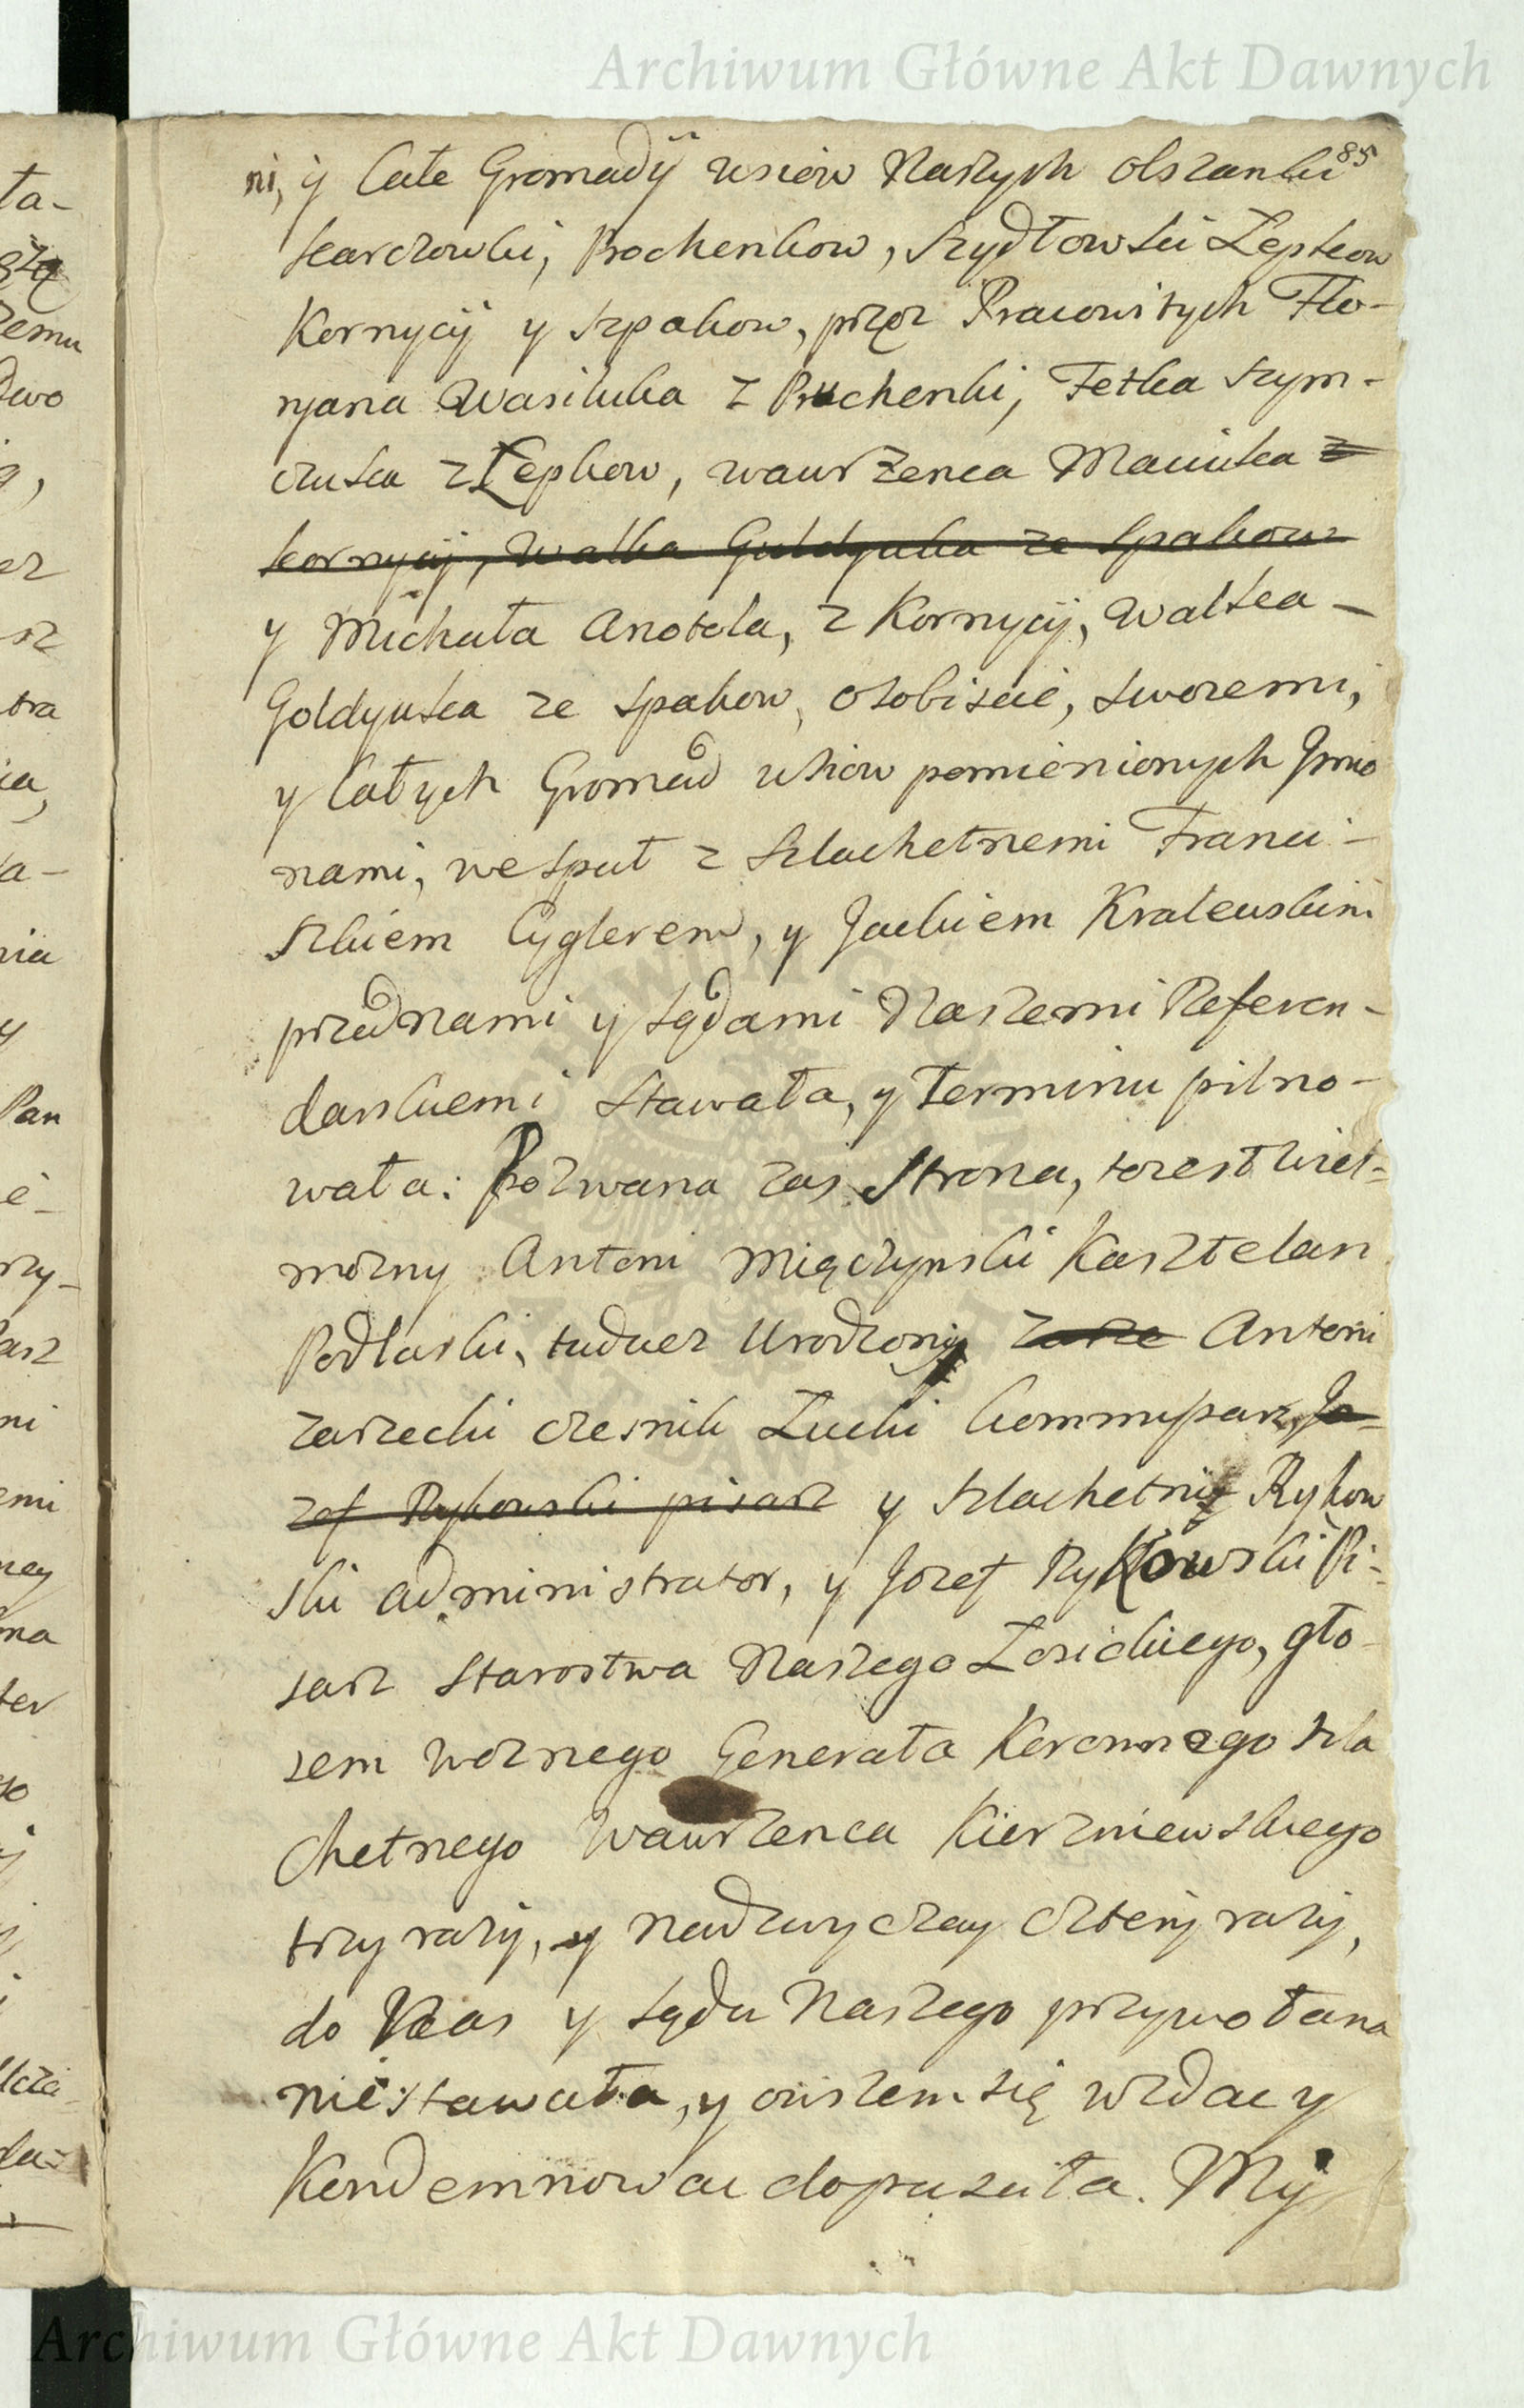 Archiwum Główne Akt Dawnych
85
ni, y Całe Gromadÿ wsiow Naszych Olszanki
karczowki, Prochenkow, szydłowski Łepkow
Kornycij y szpakow, przez Pracowitych Flo-
ryana Wasiluka z Pruchenki, Fetka szym-
czuka z Łepkow, wawrzenca Maciuka z
kornycij, Walka Goldyuka ze spakow
y Michała Anotola, z Kornycij, walka -
Goldyuka ze spakow, osobiscie, swozemi,
y Całych Gromad wsiow pomienionych Jmio
nami, wespuł z szlachetnemi Franci-
szkiem Cyglerem, y Jackiem Kralewskim
przed nami y sądami Naszemi Referen-
darskiemi stawała, y terminu pilno-
wała: Pozwana zas strona, to iest wiel-
mozny Antoni Miączynski Kasztelan
Podlaski, tudziez Urodzony zasze Antoni
zaszecki czesnik Łucki Commissarz, Jo-
zef Rykowski pisarz y szlachetny Rykow
ski administrator, y Jozef Rykowski Pi-
sarz starostwa Naszego Łosickiego, gło-
sem woznego Generała Koronnego szla
chetnego wawrzenca Kierzniewskiego
trzy razy, y nadzwyczay czterÿ razy,
do Nas y sądu Naszego przywołana
nie stawała, y owszem się wzdac y
Kondemnowac dopuscila. Mÿ
Archiwum Główne Akt Dawnych